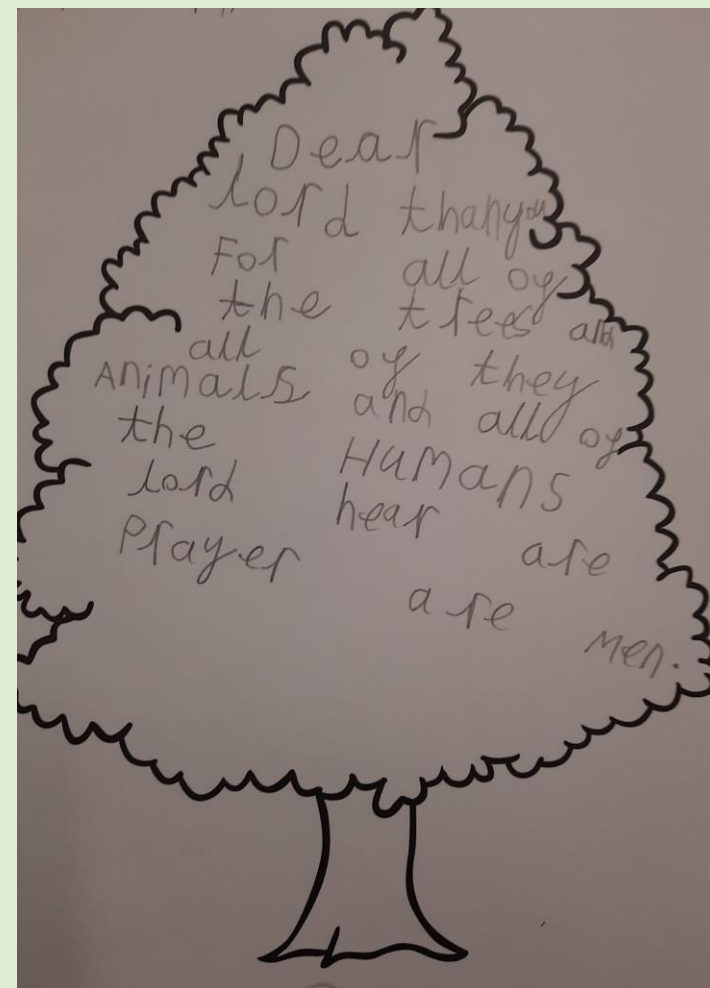 Dear
lord thanyou
For all of
the trees and
all of they
Animals and all of
the Humans
lord hear are
Prayer are
Men.